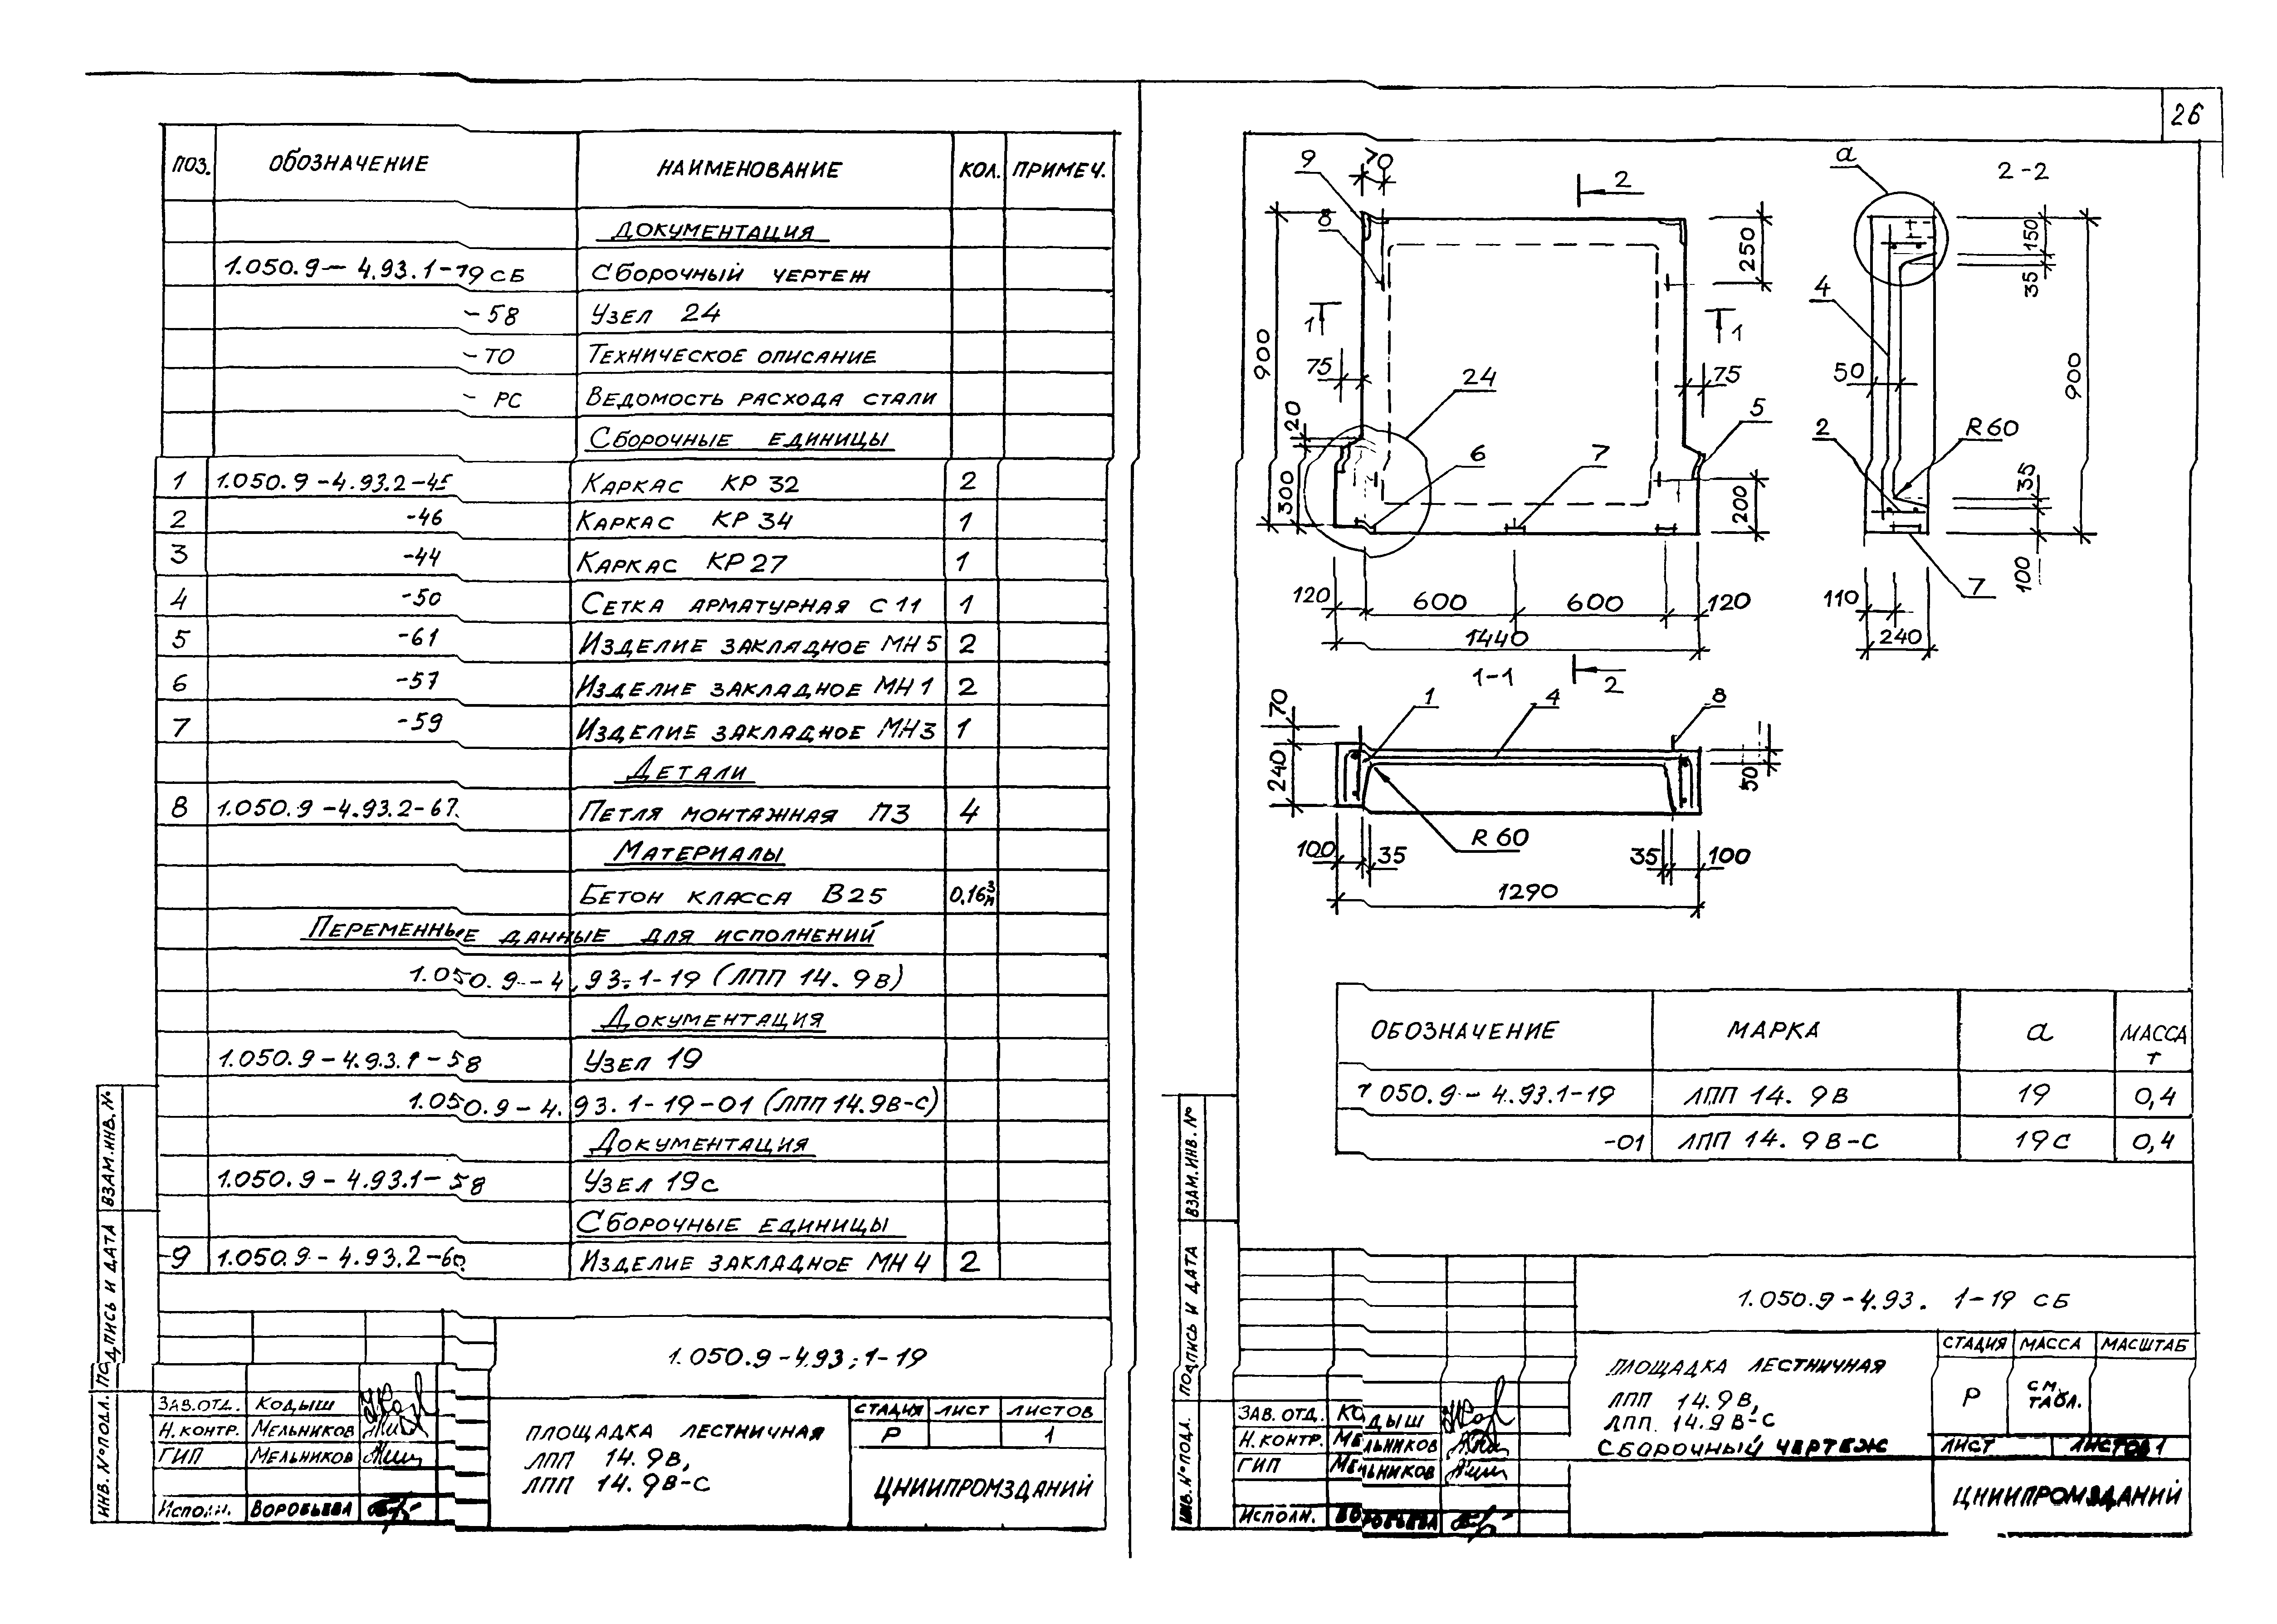 26
ПОЗ. ОБОЗНАЧЕНИЕ НАИМЕНОВАНИЕ КОЛ. ПРИМЕЧ.
ДОКУМЕНТАЦИЯ
1.050.9-4.93.1-19 СБ СБОРОЧНЫЙ ЧЕРТЕЖ
-58 УЗЕЛ 24
-ТО ТЕХНИЧЕСКОЕ ОПИСАНИЕ
- РС ВЕДОМОСТЬ РАСХОДА СТАЛИ
СБОРОЧНЫЕ ЕДИНИЦЫ
1 1.050.9-4.93.2-45 КАРКАС КР 32 2
2 -46 КАРКАС КР 34 1
3 -44 КАРКАС КР 27 1
4 -50 СЕТКА АРМАТУРНАЯ С 11 1
5 -61 ИЗДЕЛИЕ ЗАКЛАДНОЕ МН 5 2
6 -57 ИЗДЕЛИЕ ЗАКЛАДНОЕ МН 1 2
7 -59 ИЗДЕЛИЕ ЗАКЛАДНОЕ МН 3 1
ДЕТАЛИ
8 1.050.9-4.93.2-67. ПЕТЛЯ МОНТАЖНАЯ П3 4
МАТЕРИАЛЫ
БЕТОН КЛАССА В25 0,16 м³
ПЕРЕМЕННЫЕ ДАННЫЕ ДЛЯ ИСПОЛНЕНИЙ
1.050.9-4.93.1-19 (ЛПП 14.9В)
ДОКУМЕНТАЦИЯ
1.050.9-4.93.1-58 УЗЕЛ 19
1.050.9-4.93.1-19-01 (ЛПП 14.9В-С)
ДОКУМЕНТАЦИЯ
1.050.9-4.93.1-58 УЗЕЛ 19С
СБОРОЧНЫЕ ЕДИНИЦЫ
9 1.050.9-4.93.2-60. ИЗДЕЛИЕ ЗАКЛАДНОЕ МН 4 2
1.050.9-4.93.1-19
ЗАВ.ОТД. КОДЫШ
Н.КОНТР. МЕЛЬНИКОВ
ГИП МЕЛЬНИКОВ
ИСПОЛН. ВОРОБЬЕВА
ПЛОЩАДКА ЛЕСТНИЧНАЯ
ЛПП 14.9В,
ЛПП 14.9В-С
СТАДИЯ ЛИСТ ЛИСТОВ
Р 1
ЦНИИПРОМЗДАНИЙ
ВЗАМ.ИНВ.№
ПОДПИСЬ И ДАТА
ИНВ.№ПОДЛ.
9 70 2
8
250
900
1 1
75 75
24
20
5
6 7
300
200
120 600 600 120
1440
2
а 2-2
150
35
4
50
900
2 R60
35
100
7
110
240
1-1
1 4 8
70
240
50
R60
100 35 35 100
1290
ОБОЗНАЧЕНИЕ МАРКА а МАССА Т
1 050.9-4.93.1-19 ЛПП 14.9В 19 0,4
-01 ЛПП 14.9В-С 19С 0,4
1.050.9-4.93. 1-19 СБ
ЗАВ. ОТД. КОДЫШ
Н.КОНТР. МЕЛЬНИКОВ
ГИП МЕЛЬНИКОВ
ИСПОЛН. ВОРОБЬЕВА
ПЛОЩАДКА ЛЕСТНИЧНАЯ
ЛПП 14.9В,
ЛПП. 14.9В-С
СБОРОЧНЫЙ ЧЕРТЕЖ
СТАДИЯ МАССА МАСШТАБ
Р СМ. ТАБЛ.
ЛИСТ ЛИСТОВ 1
ЦНИИПРОМЗДАНИЙ
ВЗАМ.ИНВ.№
ПОДПИСЬ И ДАТА
ИНВ.№ПОДЛ.